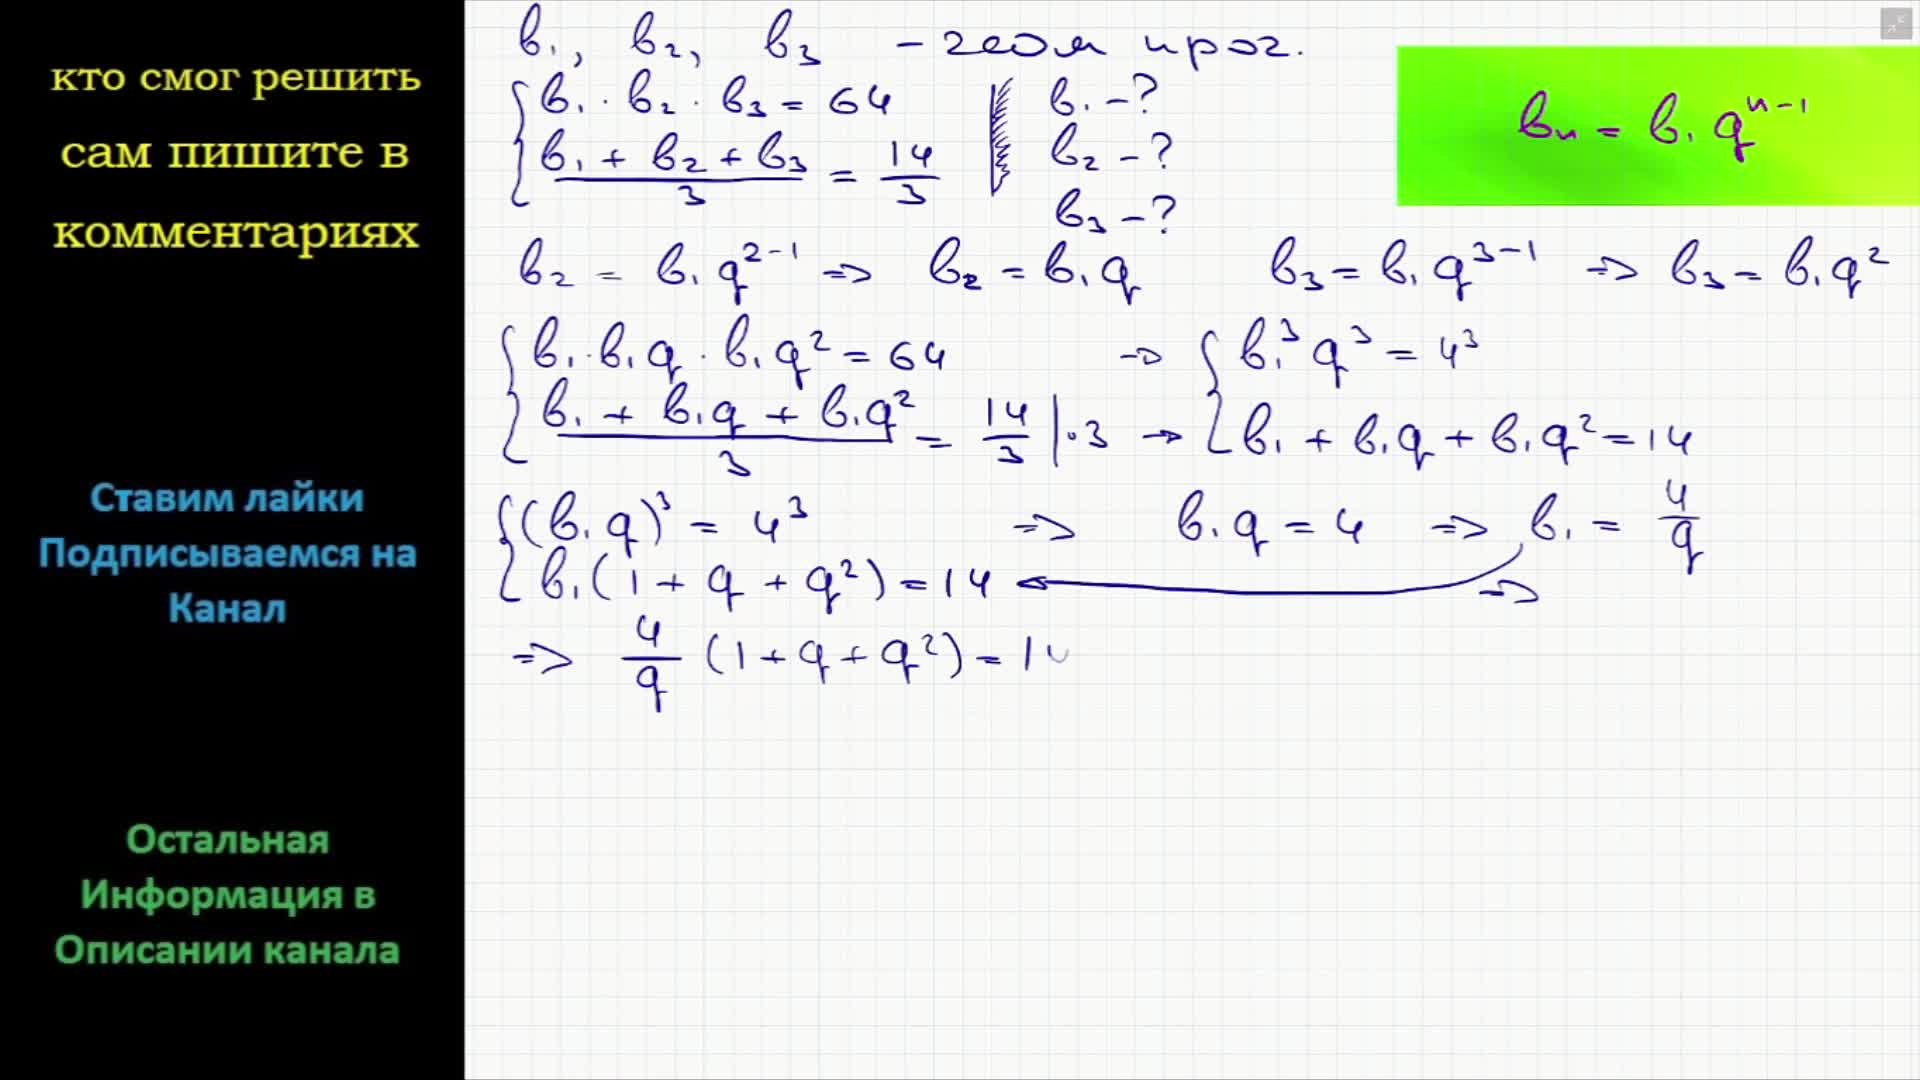 кто смог решить
сам пишите в
комментариях
Ставим лайки
Подписываемся на
Канал
Остальная
Информация в
Описании канала
b₁, b₂, b₃ – геом прог.
b₁ · b₂ · b₃ = 64
(b₁ + b₂ + b₃)/3 = 14/3
b₁ – ?
b₂ – ?
b₃ – ?
bₙ = b₁ qⁿ⁻¹
b₂ = b₁ q²⁻¹ => b₂ = b₁ q b₃ = b₁ q³⁻¹ => b₃ = b₁ q²
b₁ · b₁ q · b₁ q² = 64 -> b₁³ q³ = 4³
(b₁ + b₁ q + b₁ q²)/3 = 14/3 | · 3 -> b₁ + b₁ q + b₁ q² = 14
(b₁ q)³ = 4³ => b₁ q = 4 => b₁ = 4/q
b₁ (1 + q + q²) = 14 =>
=> 4/q (1 + q + q²) = 1